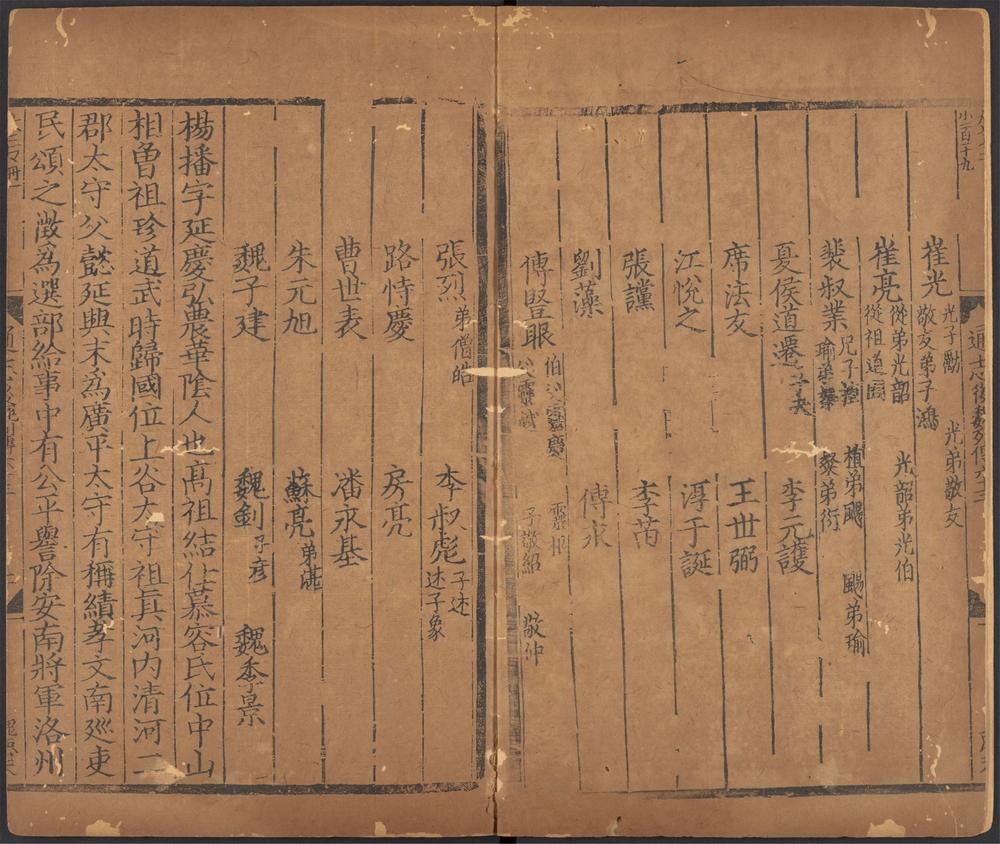 小三百十九
通志後魏列傳六十三
崔光 光子勵 光弟敬友
敬友弟子鴻
崔亮 從弟光韶 光韶弟光伯
從祖道固
裴叔業 兄子植 植弟颺 颺弟瑜
瑜弟粲 粲弟衍
夏侯道遷 子夬 李元護
席法友 王世弼
江悅之 淳于誕
張讜 李苗
劉藻 傅永
傅豎眼
敬紹 敬仲
張烈 弟僧皓 李叔彪 子述
述子象
路恃慶 房亮
曹世表 潘永基
朱元旭 蘇亮 弟湛
魏子建 魏釗 子彥 魏季景
楊播字延慶弘農華陰人也高祖結仕慕容氏位中山
相曾祖珍道武時歸國位上谷太守祖真河内清河二
郡太守父懿延興末爲廣平太守有稱績孝文南巡吏
民頌之徵爲選部給事中有公平譽除安南將軍洛州